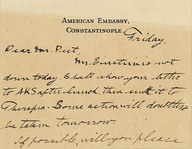 AMERICAN EMBASSY,
CONSTANTINOPLE
Friday.
Dear Mr. Peet,
Mr. Einstein is not
down today. I shall show your letter
to AKS after lunch then send it to
Therapia - Some action will doubtless
be taken tomorrow.
If possible, will you please